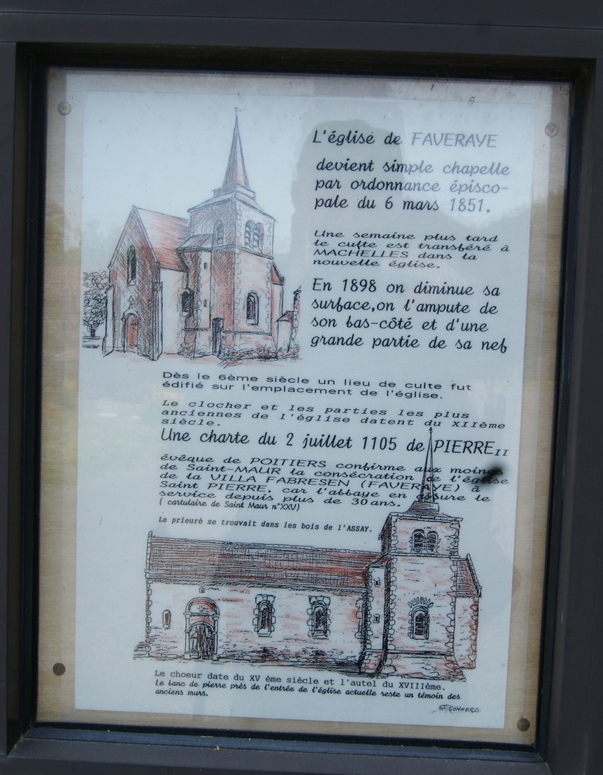 L'église de FAVERAYE
devient simple chapelle
par ordonnance épisco-
pale du 6 mars 1851.
Une semaine plus tard
le culte est transféré à
MACHELLES dans la
nouvelle église.
En 1898 on diminue sa
surface,on l'ampute de
son bas-côté et d'une
grande partie de sa nef
Dès le 6ème siècle un lieu de culte fut
édifié sur l'emplacement de l'église.
Le clocher et les parties les plus
anciennes de l'église datent du XIIème
siècle.
Une charte du 2 juillet 1105 de PIERRE II
évêque de POITIERS confirme aux moines
de Saint-MAUR la consécration de l'église
de la VILLA FABRESEN (FAVERAYE) à
Saint PIERRE, car l'abbaye en assure le
service depuis plus de 30 ans.
( cartulaire de Saint Maur n°XXV)
Le prieuré se trouvait dans les bois de l'ASSAY.
Le choeur date du XV ème siècle et l'autel du XVIIIème.
Le banc de pierre près de l'entrée de l'église actuelle reste un témoin des
anciens murs.